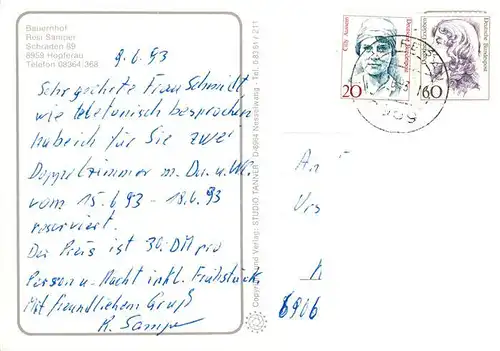 Bauernhof
Rosi Samper
Schraiten 89
8959 Hopferau
Telefon 08364/368
9.6.93
Sehr geehrte Frau Schmidt,
wie telefonisch besprochen
habe ich für Sie zwei
Doppelzimmer m. Du. u. WC
vom 15.6.93 - 18.6.93
reserviert.
Der Preis ist 30.- DM pro
Person u. Nacht inkl. Frühstück.
Mit freundlichem Gruß
R. Samper
Copyright und Verlag: STUDIO TANNER D-8964 Nesselwang - Tel. 08361 / 211
Cilly Aussem
Deutsche Bundespost
20
Deutsche Bundespost
60
An
6906